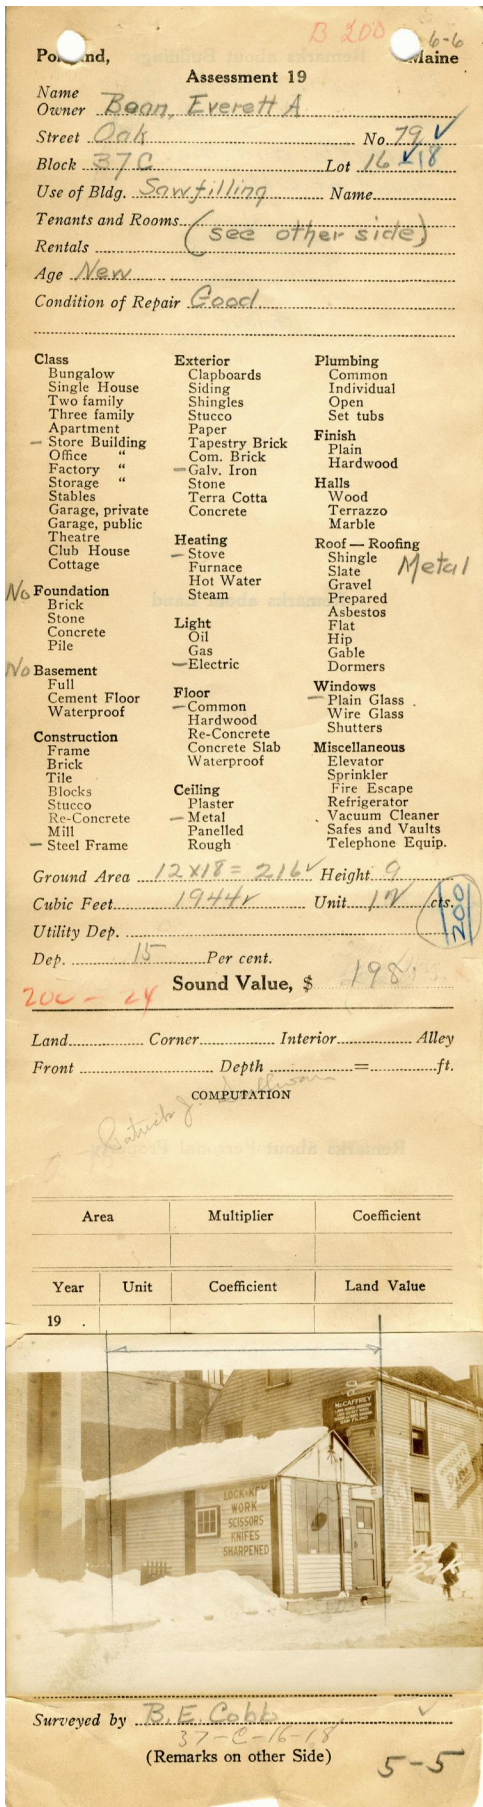 B 200 6-6
Portland, Maine
Assessment 19
Name
Owner Bean, Everett A
Street Oak No. 79
Block 37C Lot 16 18
Use of Bldg. Sawfilling Name
Tenants and Rooms
(see other side)
Rentals
Age New
Condition of Repair Good
Class
Bungalow
Single House
Two family
Three family
Apartment
– Store Building
Office "
Factory "
Storage "
Stables
Garage, private
Garage, public
Theatre
Club House
Cottage
No Foundation
Brick
Stone
Concrete
Pile
No Basement
Full
Cement Floor
Waterproof
Construction
Frame
Brick
Tile
Blocks
Stucco
Re-Concrete
Mill
– Steel Frame
Exterior
Clapboards
Siding
Shingles
Stucco
Paper
Tapestry Brick
Com. Brick
– Galv. Iron
Stone
Terra Cotta
Concrete
Heating
– Stove
Furnace
Hot Water
Steam
Light
Oil
Gas
– Electric
Floor
– Common
Hardwood
Re-Concrete
Concrete Slab
Waterproof
Ceiling
Plaster
– Metal
Panelled
Rough
Plumbing
Common
Individual
Open
Set tubs
Finish
Plain
Hardwood
Halls
Wood
Terrazzo
Marble
Roof — Roofing
Shingle
Slate Metal
Gravel
Prepared
Asbestos
Flat
Hip
Gable
Dormers
Windows
– Plain Glass
Wire Glass
Shutters
Miscellaneous
Elevator
Sprinkler
Fire Escape
Refrigerator
Vacuum Cleaner
Safes and Vaults
Telephone Equip.
Ground Area 12x18 = 216 Height 9
Cubic Feet 1944 Unit 12 cts.
200
Utility Dep.
Dep. 15 Per cent.
Sound Value, $ 198
200 - 24
Land Corner Interior Alley
Front Depth = ft.
COMPUTATION
Patrick J. Sullivan
Area Multiplier Coefficient
Year Unit Coefficient Land Value
19
McCAFFREY
LOCK-KEY
WORK
SCISSORS
KNIFES
SHARPENED
79
Oak
Surveyed by B.E. Cobb
37-C-16-18
(Remarks on other Side)
5-5